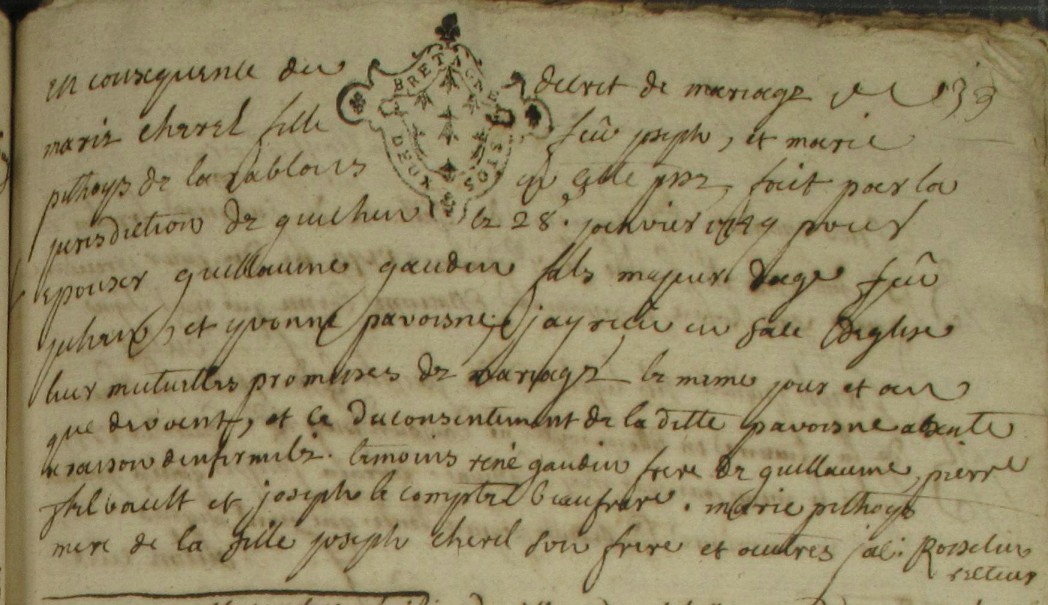 en consequence du decret de mariage de 39
marie cherel fille feû joseph, et marie
pithoys de la Sablons en cette fait par la
jurisdiction de guichen le 28e janvier 1749 pour
epouser guillaume gaudin fils majeur d'age feû
julien, et yvonne pavoisne; j'ay recu en face d'eglise
leur mutuelles promesses de mariage le meme jour et an
que devant, et ce du consentement de la ditte pavoisne absente
a raison d'infirmités. temoins rené gaudin frere de guillaume, pierre
et joseph le comptes beaufrere. marie pithoys
mere de la fille joseph cherel son frere et autres
recteur
BRETAGNE